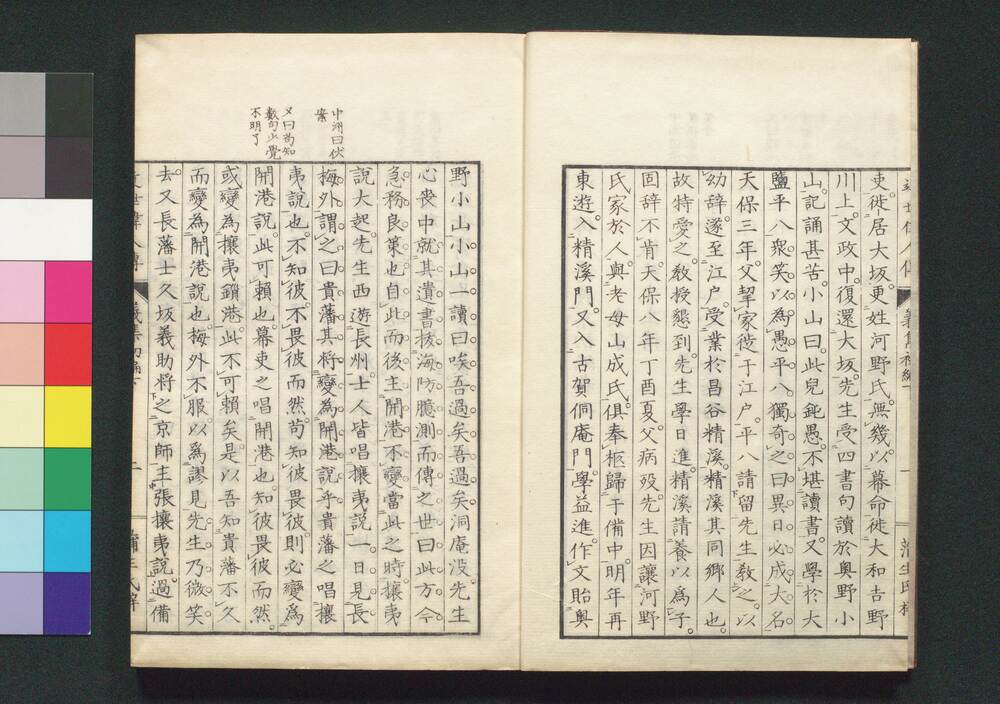 吏。徙居大坂。更姓河野氏。無幾以幕命徙大和吉野
川上。文政中。復還大坂。先生受四書句讀於奥野小
山。記誦甚苦。小山曰。此兒鈍愚。不堪讀書。又學於大
鹽平八。衆笑以爲愚。平八獨奇之曰。異日必成大名。
天保三年。父挈家徙于江戸。平八請留先生教之。以
幼辞。遂至江戸。受業於昌谷精溪。精溪其同郷人也。
故特愛之。教授懇到。先生學日進。精溪請養以爲子。
固辞不肯。天保八年丁酉夏。父病歿。先生因讓河野
氏家於人。與老母山成氏。俱奉柩歸于備中。明年再
東遊。入精溪門。又入古賀侗庵門。學益進。作文貽奥
中洲曰伏
案
又曰苟知
數句少覺
不明了
野小山。小山一讀曰。唉吾過矣。吾過矣。洞庵没。先生
心喪中。就其遺書。抜海防臆測而傳之世曰。此方今
急務良策也。自此而後。主開港不變。當此之時。攘夷
説大起。先生西遊長州。士人皆唱攘夷説。一日見長
梅外。謂之曰。貴藩其將變爲開港説乎。貴藩之唱攘
夷説也。不知彼。不畏彼而然。苟知彼畏彼。則必變爲
開港説。此可頼也。幕吏之唱開港也。知彼畏彼而然。
或變爲攘夷鎖港。此不可頼矣。是以吾知貴藩不久
而變爲開港説也。梅外不服。以爲謬見。先生乃微笑。
去。又長藩士久坂義助將之京師主張攘夷説。過備